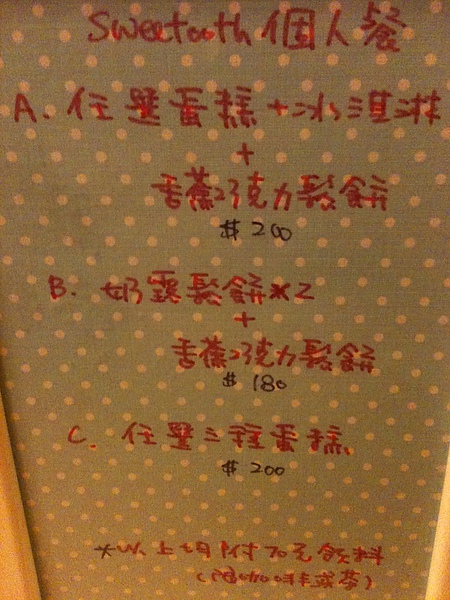 Sweetooth 個人餐
A. 任選蛋糕+冰淇淋
+
香蕉巧克力鬆餅
$ 200
B. 奶露鬆餅×2
+
香蕉巧克力鬆餅
$ 180
C. 任選三種蛋糕
$ 200
*以上均附70元飲料
(限咖啡或茶)